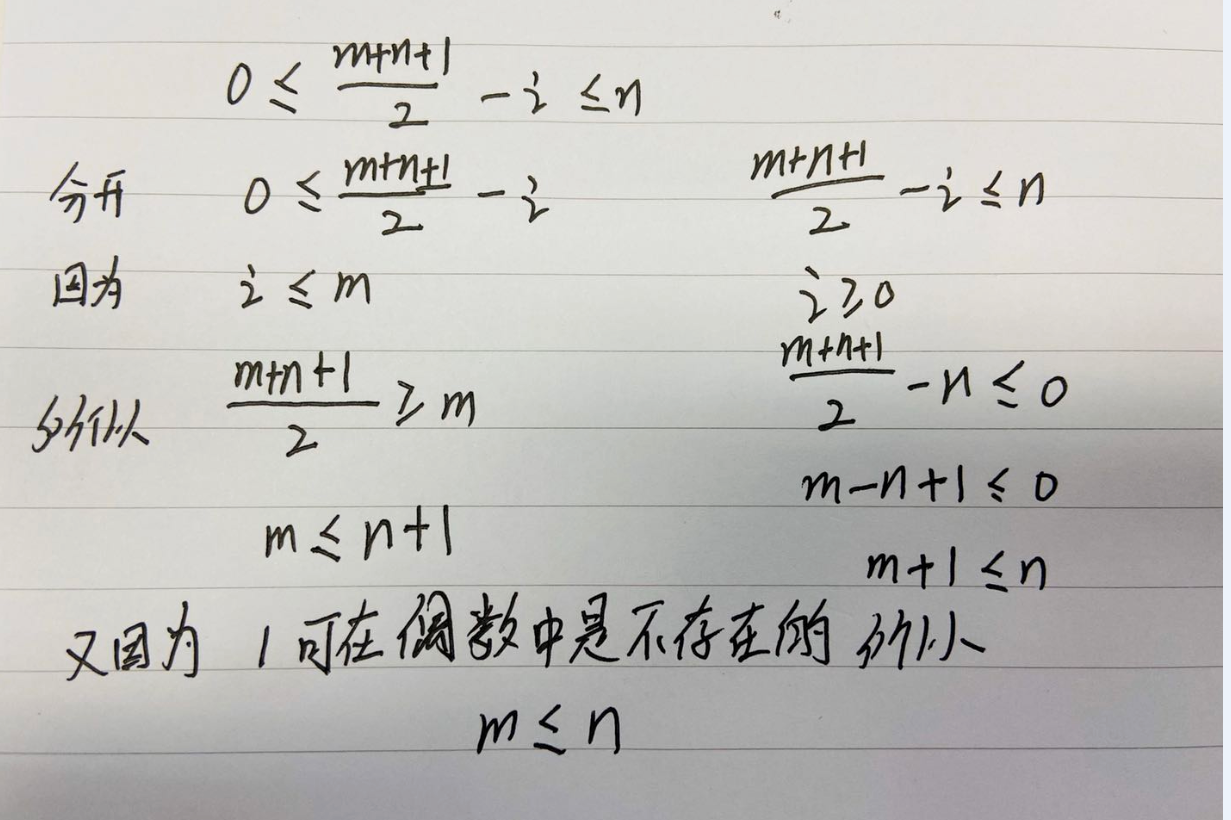 0 ≤ (m+n+1)/2 - i ≤ n
分开 0 ≤ (m+n+1)/2 - i (m+n+1)/2 - i ≤ n
因为 i ≤ m i ≥ 0
所以 (m+n+1)/2 ≥ m (m+n+1)/2 - n ≤ 0
m-n+1 ≤ 0
m ≤ n+1
m+1 ≤ n
又因为 1 可在偶数中是不存在的 所以
m ≤ n